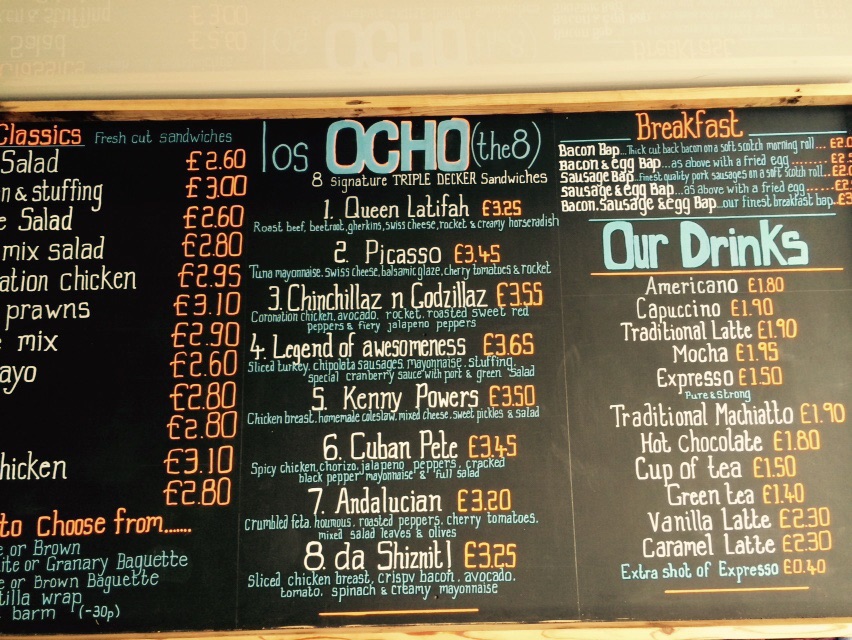 Classics Fresh cut sandwiches
Salad £2.60
n & stuffing £3.00
e Salad £2.60
mix salad £2.80
ation chicken £2.95
prawns £3.10
e mix £2.90
ayo £2.60
£2.80
£2.80
hicken £3.10
£2.80
to choose from.......
e or Brown
ite or Granary Baguette
e or Brown Baguette
tilla wrap
barm (-30p)
los OCHO (the 8)
8 signature TRIPLE DECKER Sandwiches
1. Queen Latifah £3.25
Roast beef, beetroot, gherkins, swiss cheese, rocket & creamy horseradish
2. Picasso £3.45
Tuna mayonnaise, Swiss cheese, balsamic glaze, cherry tomatoes & rocket
3. Chinchillaz n Godzillaz £3.55
Coronation chicken, avocado, rocket, roasted sweet red
peppers & fiery jalapeno peppers
4. Legend of awesomeness £3.65
Sliced turkey, chipolata sausages, mayonnaise, stuffing,
special cranberry sauce with port & green Salad
5. Kenny Powers £3.50
Chicken breast, homemade coleslaw, mixed cheese, sweet pickles & salad
6. Cuban Pete £3.45
Spicy chicken, chorizo, jalapeno peppers, cracked
black pepper mayonnaise & full salad
7. Andalucian £3.20
Crumbled feta, houmous, roasted peppers, cherry tomatoes,
mixed salad leaves & olives
8. da Shiznitl £3.25
Sliced chicken breast, crispy bacon, avocado,
tomato, spinach & creamy mayonnaise
Breakfast
Bacon Bap...Thick cut back bacon on a soft scotch morning roll....
Bacon & egg Bap...as above with a fried egg
Sausage Bap...Finest quality pork sausages on a soft scotch roll...
Sausage & egg Bap...as above with a fried egg
Bacon, Sausage & egg Bap...our finest breakfast bap
Our Drinks
Americano £1.80
Capuccino £1.90
Traditional Latte £1.90
Mocha £1.95
Expresso £1.50
Pure & Strong
Traditional Machiatto £1.90
Hot Chocolate £1.80
Cup of tea £1.50
Green tea £1.40
Vanilla Latte £2.30
Caramel Latte £2.30
Extra shot of Expresso £0.40